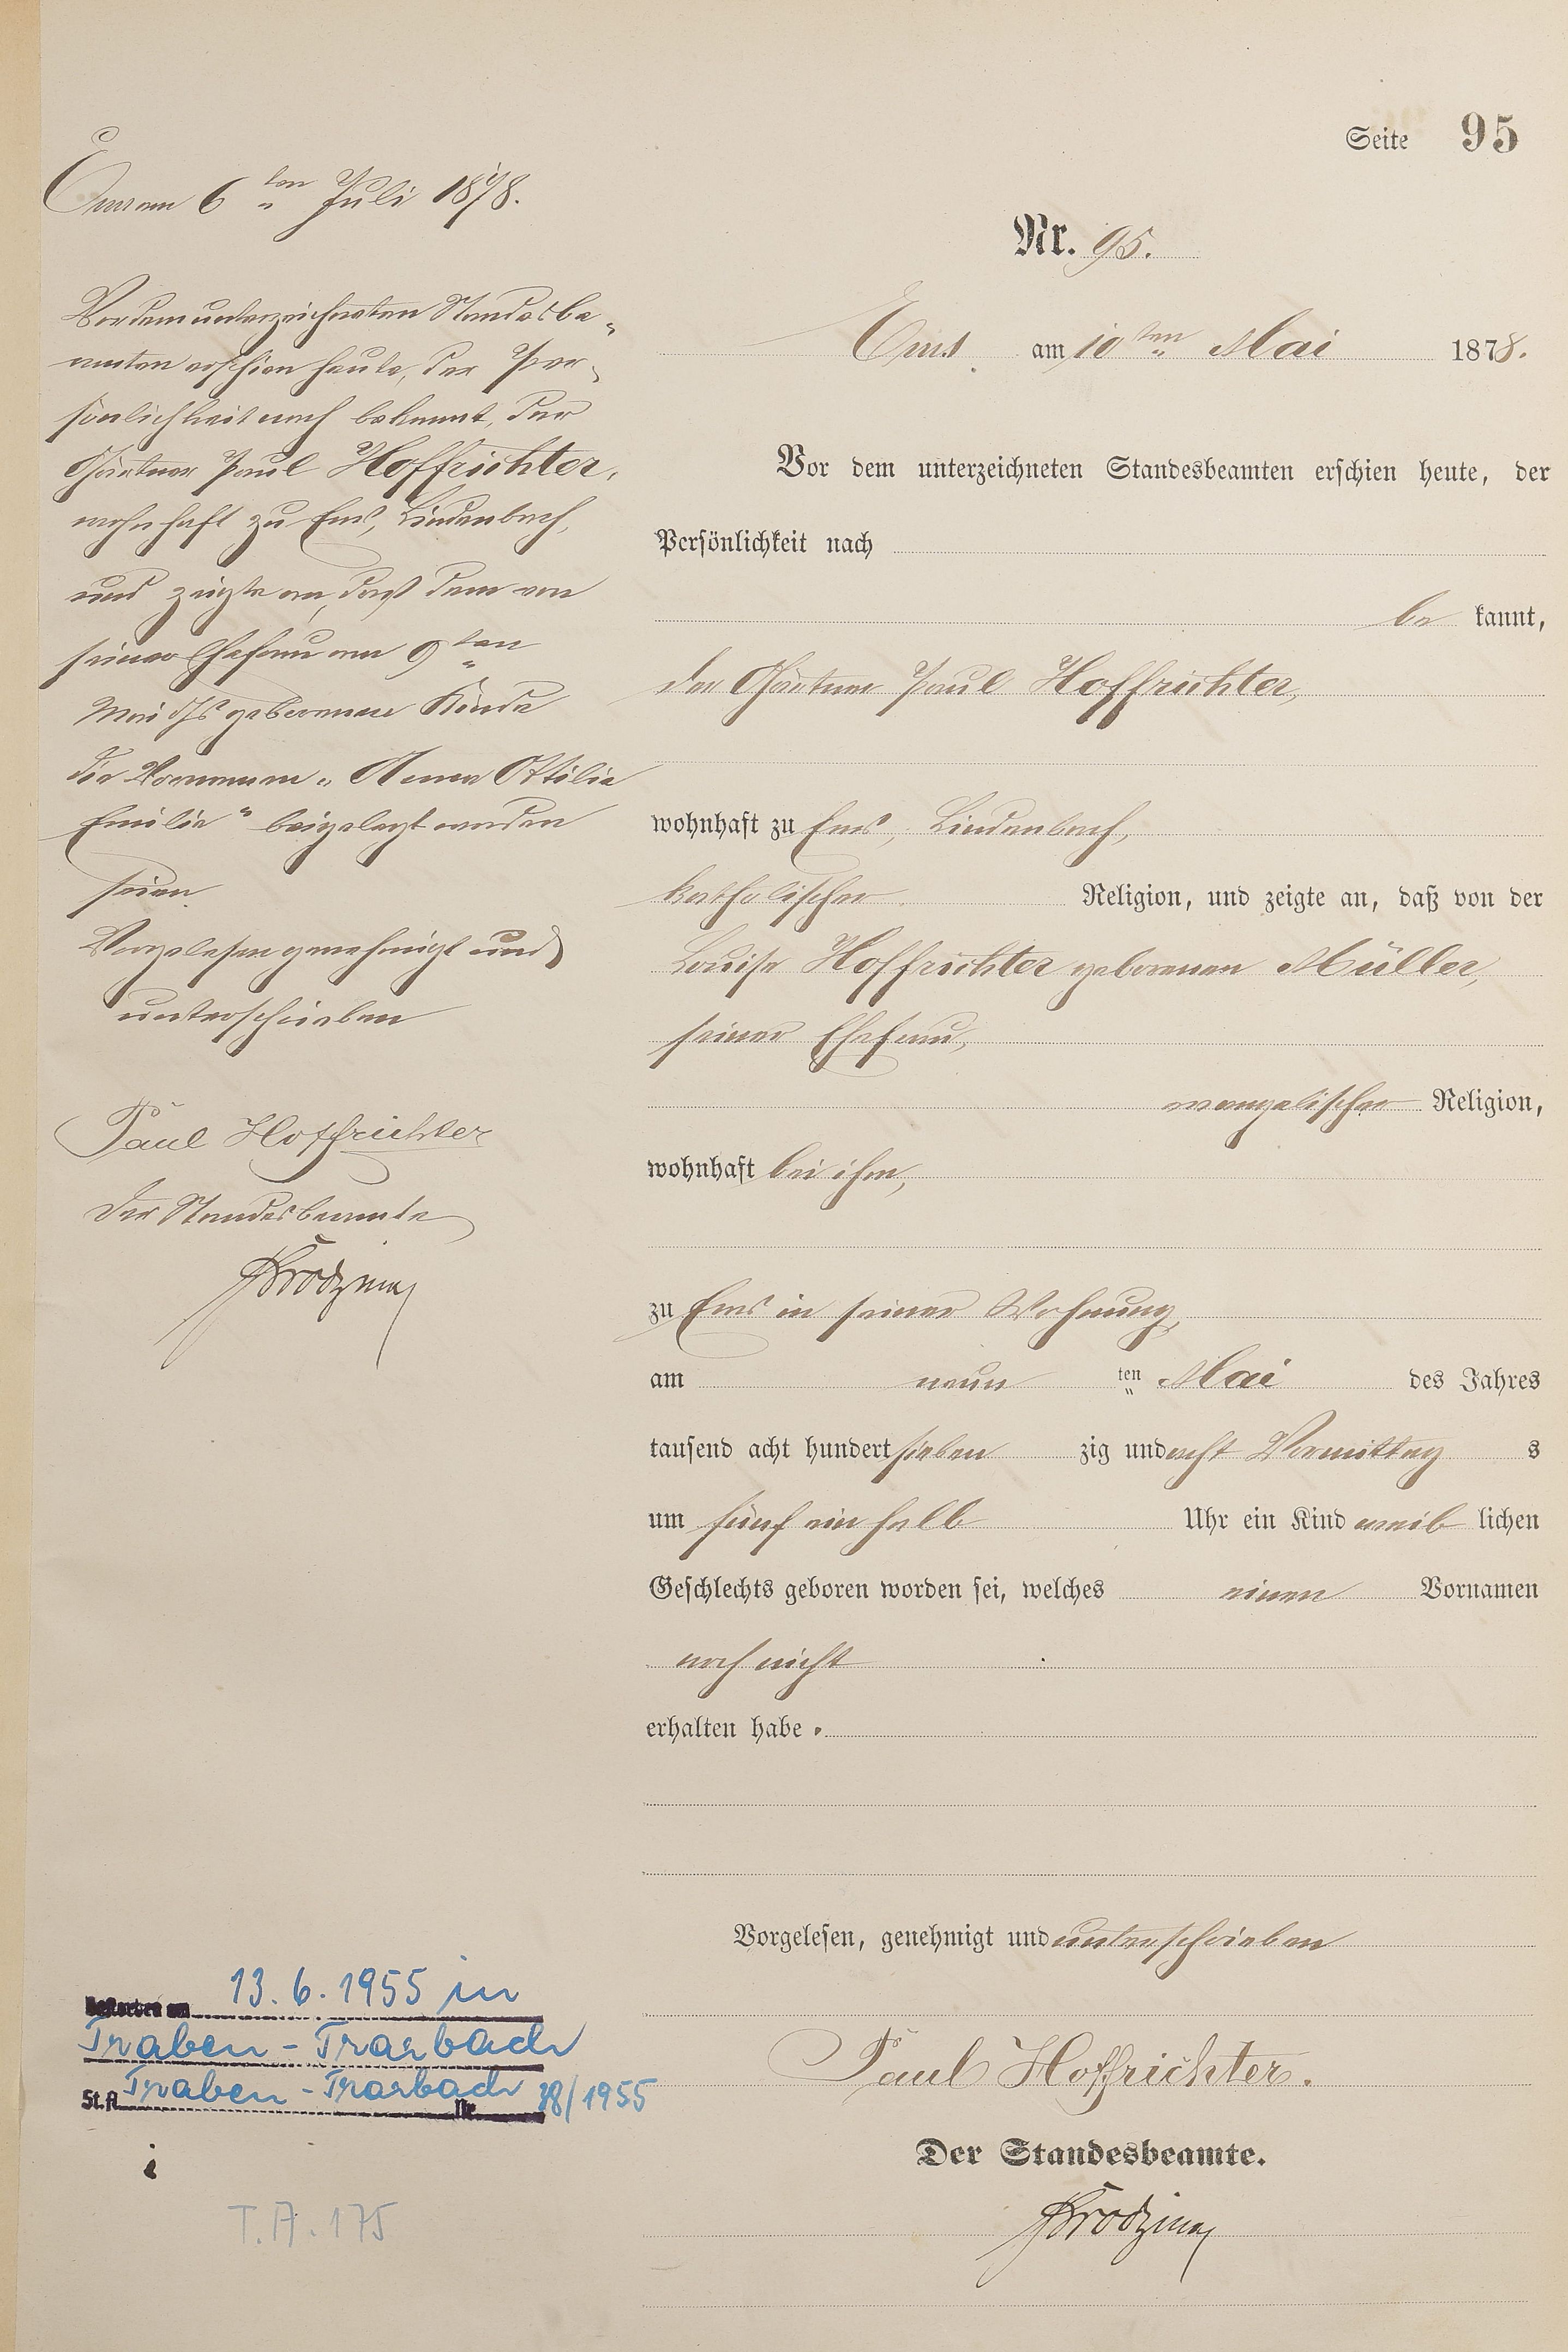 Seite 95
Ems am 6ten Juli 1878.
Vor dem unterzeichneten Standesbe„
amten erschien heute, der Per„
sönlichkeit nach bekannt, der
Gärtner Paul Hoffrichter,
wohnhaft zu Ems, Lindenbach,
und zeigte an, daß dem von
seiner Ehefrau am 9ten
Mai d Js geborenen Kinde
die Vornamen „Anna Ottilie
Emilie“ beigelegt worden
seien
Vorgelesen genehmigt und
unterschrieben
Paul Hoffrichter
Der Standesbeamte
Nr. 95.
Ems am 10ten Mai 1878.
Vor dem unterzeichneten Standesbeamten erschien heute, der
Persönlichkeit nach
be kannt,
der Gärtner Paul Hoffrichter,
wohnhaft zu Ems, Lindenbach,
katholischer Religion, und zeigte an, daß von der
Louise Hoffrichter geborenen Müller,
seiner Ehefrau,
evangelischer Religion,
wohnhaft bei ihm,
zu Ems in seiner Wohnung,
am neun ten Mai des Jahres
tausend acht hundert sieben zig und acht Vormittag s
um fünf ein halb Uhr ein Kind weib lichen
Geschlechts geboren worden sei, welches einen Vornamen
noch nicht
erhalten habe.
Vorgelesen, genehmigt und unterschrieben
Paul Hoffrichter.
Der Standesbeamte.
Gestorben am 13.6.1955 in
Traben-Trarbach
St.A. Traben-Trarbach Nr. 38/1955
T.A. 175